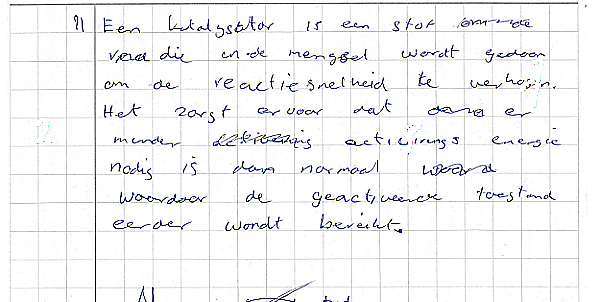 9) Een katalysator is een stof
die in de mengsel wordt gedaan
om de reactiesnelheid te verhogen.
Het zorgt ervoor dat er
minder activerings energie
nodig is dan normaal
waardoor de geactiveerde toestand
eerder wordt bereikt.